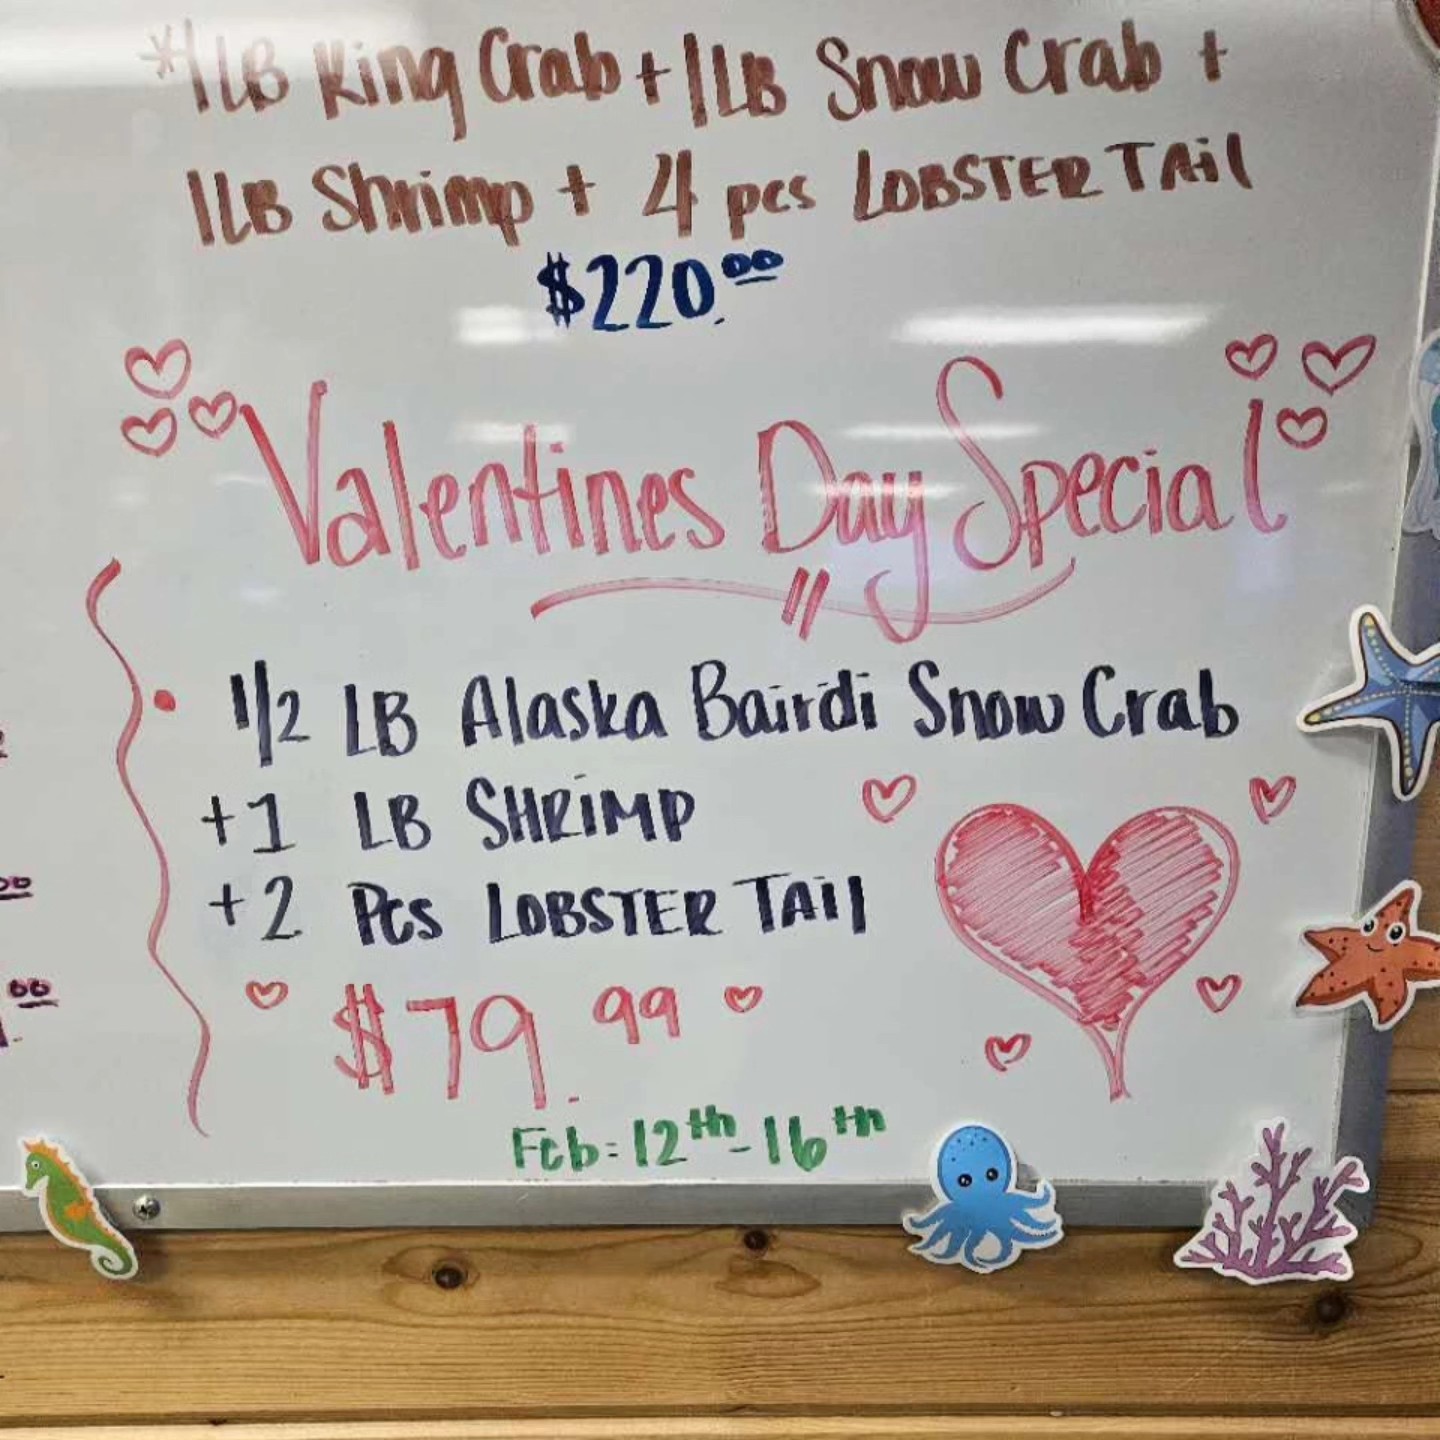 *1 LB King Crab + 1 LB Snow Crab +
1 LB Shrimp + 4 pcs LOBSTER TAil
$220.00
Valentines Day Special
1/2 LB Alaska Bairdi Snow Crab
+1 LB SHRiMP
+2 Pcs LOBSTER TAil
$79.99
Feb: 12th-16th